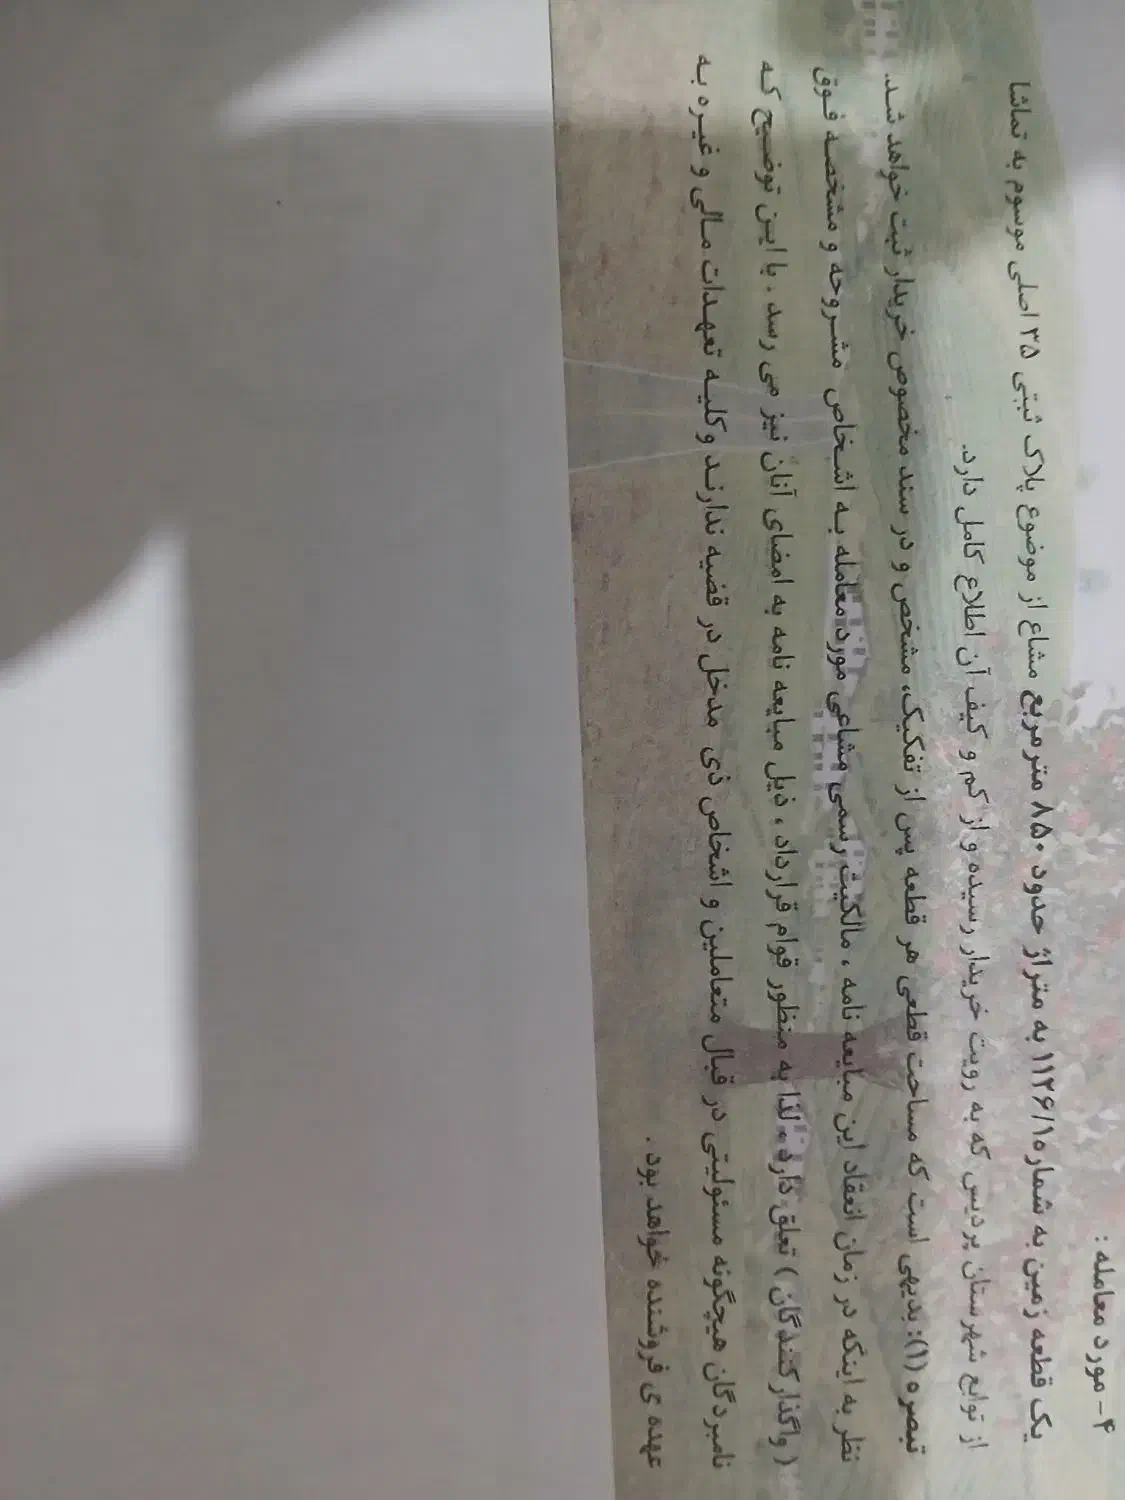 ۴- مورد معامله :
یک قطعه زمین به شماره ۱۱۲۶/۱ به متراژ حدود ۸۵۰ مترمربع مشاع از موضوع پلاک ثبتی ۳۵ اصلی موسوم به تماشا
از توابع شهرستان پردیس که به رویت خریدار رسیده و از کم و کیف آن اطلاع کامل دارد.
تبصره (۱): بدیهی است که مساحت قطعی هر قطعه پس از تفکیک، مشخص و در سند مخصوص خریدار ثبت خواهد شد.
نظر به اینکه در زمان انعقاد این مبایعه نامه ، مالکیت رسمی مشاعی مورد معامله به اشخاص مشروحه و مشخصه فوق
( واگذار کنندگان ) تعلق دارد ، لذا به منظور قوام قرارداد ، ذیل مبایعه نامه به امضای آنان نیز می رسد ، با این توضیح که
نامبردگان هیچگونه مسئولیتی در قبال متعاملین و اشخاص ذی مدخل در قضیه ندارند و کلیه تعهدات مالی و غیره به
عهده ی فروشنده خواهد بود .